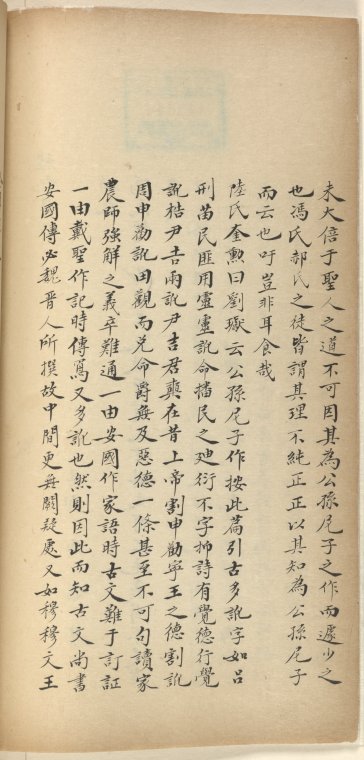 未大倍于聖人之道不可因其為公孫尼子之作而遽少之
也馮氏郝氏之徒皆謂其理不純正正以其知為公孫尼子
而云也吁豈非耳食哉
陸氏奎勲曰劉瓛云公孫尼子作按此篇引古多訛字如吕
刑苗民匪用靈靈訛命播民之廸衍不字抑詩有覺德行覺
訛梏尹吉兩訛尹吉君奭在昔上帝割申勸寧王之德割訛
周申勸訛田觀而兑命爵無及惡德一條甚至不可句讀家
農師強解之義卒難通一由安國作家語時古文難于訂証
一由戴聖作記時傳寫又多訛也然則因此而知古文尚書
安國傳必魏晋人所撰故中間更無闕疑處又如穆穆文王